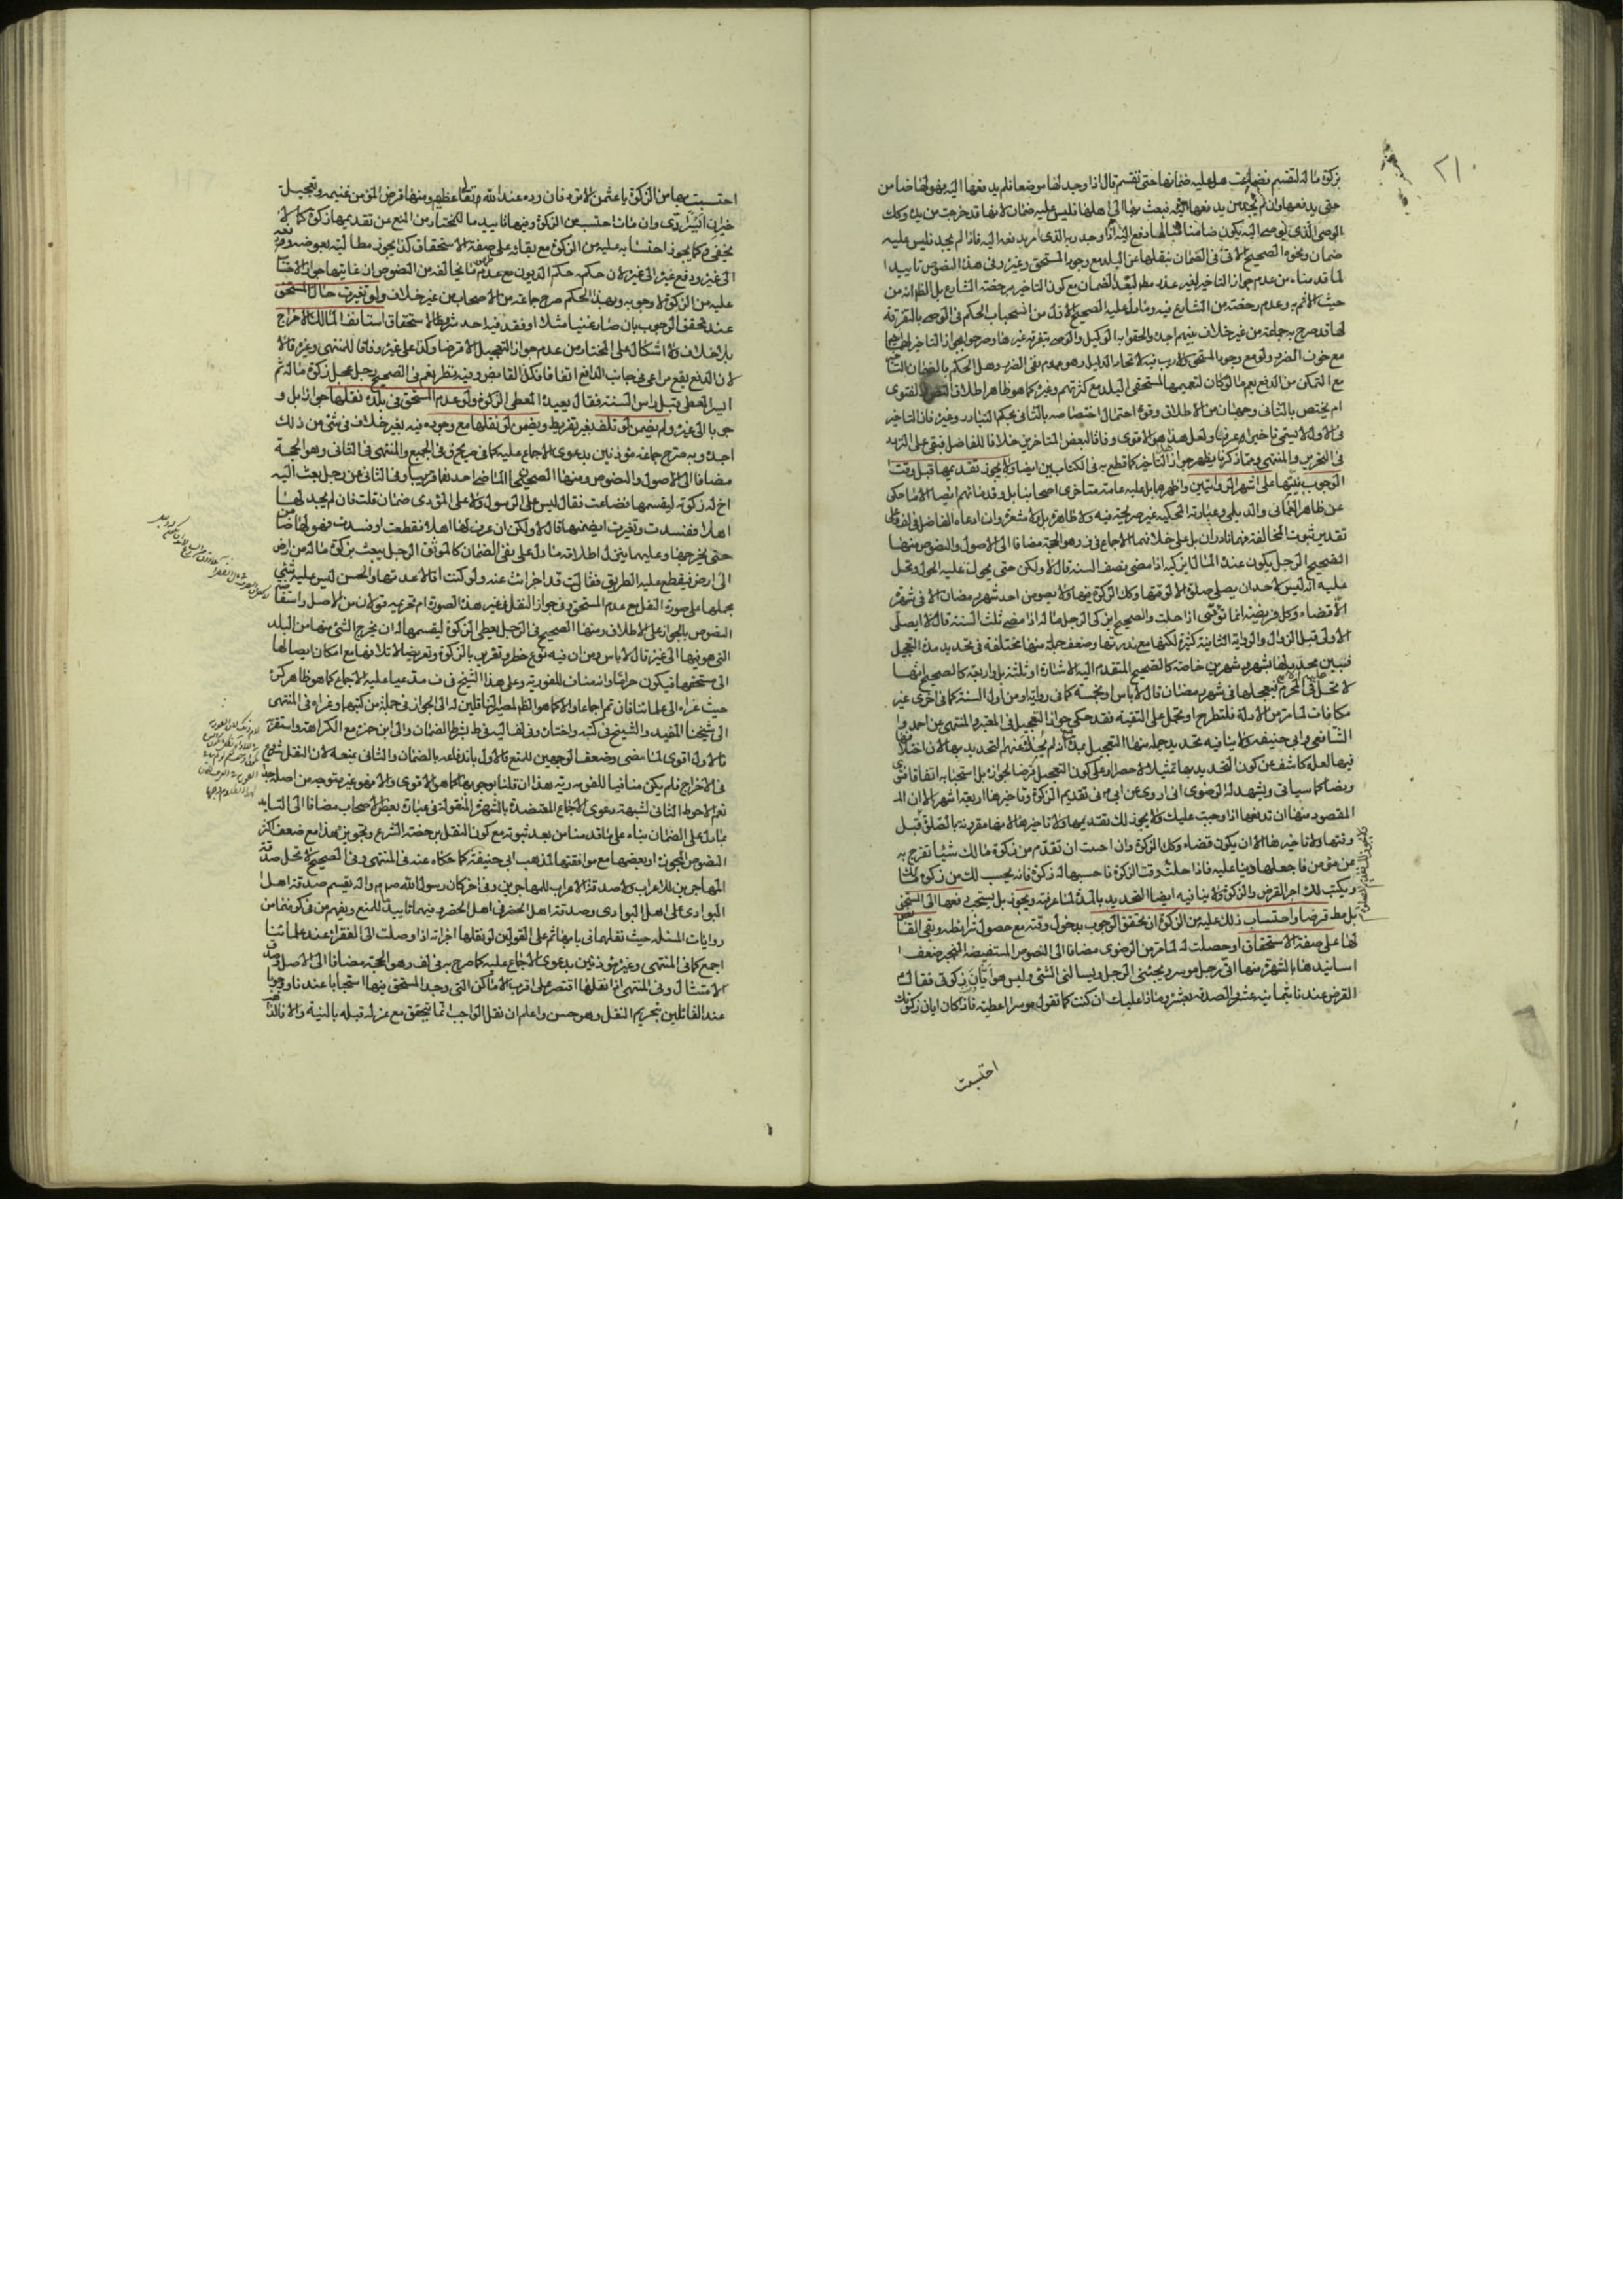 ٢١٠
بزكوة ماله لتقسم فضاعت هل عليه ضمانها حتى تقسم قال اذا وجد لها موضعا فلم يدفعها اليه فهو لها ضامن
حتى يدفعها وان لم يجد من يدفعها اليه فبعث بها الى اهلها فليس عليه ضمان لانها قد خرجت من يده وكك
الوصى الذى يوصى اليه يكون ضامنا لما دفع اليه اذا وجد ربه الذى امر بدفعه اليه فاذا لم يجد فليس عليه
ضمان ونحوه الصحيح الاتى فى الضمان بنقلها عن البلد مع وجود المستحق وغيره وفى هذه النصوص تاييدا
لما قدمناه من عدم جواز التاخير لغير عذر مطلقا لبعد الضمان مع كون التاخير برخصة الشارع بل الظ انه من
حيث الاثم به وعدم رخصته من الشارع فيه وما دل عليه الصحيح الاول من انسحاب الحكم فى الوصى بالتفرقة
لها قد صرح به جماعة من غير خلاف بينهم اجده والحقوا به الوكيل والوصى بتفرقة غيرها وصرحوا بجواز التاخير
مع خوف الضرر ولو مع وجود المستحق ولا ريب فيه لاتحاد الدليل وهو عموم نفى الضرر وهل الحكم بالضمان
مع التمكن من الدفع يعم ما لو كان لتعميمها المستحقى البلد مع كثرتهم وغيره كما هو ظاهر اطلاق النص والفتوى
ام يختص بالثانى وجهان من الاطلاق وقوة احتمال اختصاصه بالثانى بحكم التبادر وغيره فان التاخير
فى الاول لا يسمى تاخيرا عرفا ولعل هذا هو الاقوى وفاقا لبعض المتاخرين خلافا للفاضل فبقى على التردد
فى التحرير والمنتهى ومما ذكرنا يظهر جواز التاخير كما قطع به فى الكتابين ايضا ولا يجوز تقديمها قبل وقت
الوجوب بنيتها على اشهر الروايتين واظهرهما بل عليه عامة متاخرى اصحابنا بل وقدمائهم ايضا الا ما حكى
عن ظاهر العمانى والديلمى وعبارته المحكية غير صريحة فيه ولا ظاهرة بل ولا مشعرة وان ادعاه الفاضل فى لف وعلى
تقدير ثبوت المخالفة فهما نادران بل على خلافهما الاجماع فى ف وهو الحجة مضافا الى الاصول والنصوص منها
الصحيح الرجل يكون عنده المال ايزكيه اذا مضى نصف السنة قال لا ولكن حتى يحول عليه الحول وتحل
عليه انه ليس لاحد ان يصلى صلوة الا لوقتها وكك الزكوة فيها ولا يصوم احد شهر رمضان الا فى شهره
الا قضاء وكل فريضة انما تؤدى اذا حلت والصحيح ايزكى الرجل ماله اذا مضى ثلث السنة قال لا ايصلى
الاولى قبل الزوال والرواية الثانية كثيرة لكنها مع ندرتها وضعف جملة منها مختلفة فى تحديد مدة التعجيل
فبين محدد لها بشهر وشهرين خاصة كالصحيح المتقدم اليه الاشارة او ثلثة بل واربعة كالصحيح انها
لا تحل فى المحرم فيعجلها فى شهر رمضان قال لا باس او بخمسة كما فى رواية او من اول السنة كما فى اخرى غير
مكافات لما مر من الادلة فلتطرح او تحمل على التقية فقد حكى جواز التعجيل فى المعتبر والمنتهى عن احمد و
الشافعى وابى حنيفة ولا ينافيه تحديد جملة منها التعجيل بمدة انه لم يحك عنهم التحديد بها لان اختلافها
فيها لعله كاشف عن كون التحديد بها تمثيلا لا حصرا وعلى كون التعجيل قرضا لجوازه بل استحبابه اتفاقا فتوى
ونصا كما سياتى ويشهد له الرضوى انى اروى عن ابى ع فى تقديم الزكوة وتاخيرها اربعة اشهر الا ان الـ
المقصود منها ان تدفعها اذا وجبت عليك ولا يجوز لك تقديمها ولا تاخيرها لانها مقرونة بالصلوة قبل
وقتها ولا تاخيرها الا ان يكون قضاء وكك الزكوة وان احببت ان تقدم من زكوة مالك شيئا تفرج به
عن مؤمن فاجعلها دينا عليه فاذا حلت وقت الزكوة فاحسبها له زكوة فانه يحسب لك من زكوة مالك
ويكتب لك اجر القرض والزكوة ولا ينافيه ايضا التحديد بالمدة لما عرفته ويجوز بل يستحب دفعها الى المستحق
قبل مط قرضا واحتساب ذلك عليه من الزكوة ان تحقق الوجوب بدخول وقته مع حصول شرائطه وبقى القابض
لها على صفة الاستحقاق او حصلت له لما مر من الرضوى مضافا الى النصوص المستفيضة المنجبر ضعف
اسانيدها بالشهرة منها انى رجل موسر ويجيئنى الرجل ويسالنى الشئ وليس هو ابان زكوتى فقال له
القرض عندنا بثمانية عشر والصدقة بعشرة وماذا عليك ان كنت كما تقول موسرا اعطيته فاذا كان ابان زكوتك
احتسبت
احتسبت بها من الزكوة يا عثمن لا ترده فان رده عند الله تعالى عظيم ومنها قرض المؤمن غنيمة وتعجيل
خير ان ايسر ادى وان مات احتسب من الزكوة وفيها تاييد ما للمختار من المنع عن تقديمها زكوة كما لا
يخفى وكما يجوز احتسابه عليه من الزكوة مع بقائه على صفة الاستحقاق كذا يجوز مطالبته بعوضه ودفعه
الى غيره ودفع غيره الى غيره لان حكمه حكم الديون مع عدم ما يخالفه من النصوص ان غايتها جواز الاحتساب
عليه من الزكوة لا وجوبه وبهذا الحكم صرح جماعة من الاصحاب من غير خلاف ولو تغيرت حال المستحق
عند تحقق الوجوب بان صار غنيا مثلا او فقد فيه احد شروط الاستحقاق استانف المالك الاخراج
بلا خلاف ولا اشكال على المختار من عدم جواز التعجيل الا قرضا وكذا على غيره وفاقا للمنتهى وغيره قال
لان الدفع يقع مراعى فى جانب الدافع اتفاقا فكذا القابض وفيه نظر نعم فى الصحيح رجل عجل زكوة ماله ثم
ايسر المعطى قبل راس السنة فقال يعيد المعطى الزكوة ولو عدم المستحق فى بلده نقلها جوازا بل و
جوبا الى غيره ولم يضمن لو تلف بغير تفريط ويضمن لو نقلها مع وجوده فيه بغير خلاف فى شئ من ذلك
اجده وبه صرح جماعة مؤذنين بدعوى الاجماع عليه كما فى صريح ف وفى الجميع والمنتهى فى الثانى وهو الحجة
مضافا الى الاصول والنصوص ومنها الصحيحان الماضى احدهما قريبا وفى الثانى عن رجل بعث اليه
اخ له زكوته ليقسمها فضاعت فقال ليس على الرسول ولا على المؤدى ضمان قلت فان لم يجد لها
اهلا ففسدت وتغيرت ايضمنها قال لا ولكن ان عرف لها اهلا فعطبت او فسدت فهو لها ضامن
حتى يخرجها وعليهما ينزل اطلاق ما دل على نفى الضمان كالموثق الرجل يبعث بزكوة ماله من ارض
الى ارض فيقطع عليه الطريق فقال قد اجزات عنه ولو كنت انا لاعدتها والحسن ليس عليه شئ
بحملها على صورة النقل مع عدم المستحق وفى جواز النقل فى غير هذه الصورة ام تحريمه قولان من الاصل واستفاضة
النصوص بالجواز على الاطلاق ومنها الصحيح فى الرجل يعطى الزكوة ليقسمها له ان يخرج الشئ منها من البلد
التى هو فيها الى غيره قال لا باس ومن ان فيه نوع خطر وتغرير بالزكوة وتعريضا لاتلافها مع امكان ايصالها
الى مستحقها فيكون حراما وانه مناف للفورية وعلى هذا الشيخ فى ف مدعيا عليه الاجماع كما هو ظاهر كرة
حيث عزاه الى علمائنا فان تم اجماعا والا كما هو الظ لمصير القائلين له الى الجواز فى جملة من كتبهما وعزاه فى المنتهى
الى شيخنا المفيد والشيخ فى كتبه واختاره وفى لف اليه فى ط بشرط الضمان والى ابن حمزة مع الكراهة واستقربه
فالاول اقوى لما مضى وضعف الوجهين للمنع فالاول باندفاعه بالضمان والثانى بمنعه لان النقل شروع
فى الاخراج فلم يكن منافيا للفورية هذا ان قلنا بوجوبها كما هو الاقوى والا فهو غير متوجه من اصله
نعم الاحوط الثانى لشبهة دعوى الاجماع المعتضدة بالشهرة المنقولة فى عبارة بعض الاصحاب مضافا الى التاييد
بما دل على الضمان بناء على ما قدمنا من بعد ثبوته مع كون النقل برخصة الشرع وتجويزه هذا مع ضعف اكثر
النصوص المجوزة او بعضها مع موافقتها لمذهب ابى حنيفة كما حكاه عنه فى المنتهى وفى الصحيح لا تحل صدقة
المهاجرين للاعراب ولا صدقة الاعراب للمهاجرين وفى اخر كان رسول الله ص يقسم صدقة اهل
البوادى على اهل البوادى وصدقة اهل الحضر فى اهل الحضر وفيهما تاييد للمنع
روايات المسئلة حيث نقلهما فى بابها ثم على القولين لو نقلها اجزاته اذا وصلت الى الفقراء عند علمائنا
اجمع كما فى المنتهى وغيره مؤذنين بدعوى الاجماع عليه كما صرح به فى لف وهو الحجة مضافا الى الاصل وصدق
الامتثال وفى المنتهى اذا نقلها اقتصر على اقرب الاماكن التى وجد المستحق فيها استحبابا عندنا ووجوبا
عند القائلين بتحريم النقل وهو حسن واعلم ان نقل الواجب انما يتحقق مع عزله قبله بالنية والا فالذاهب